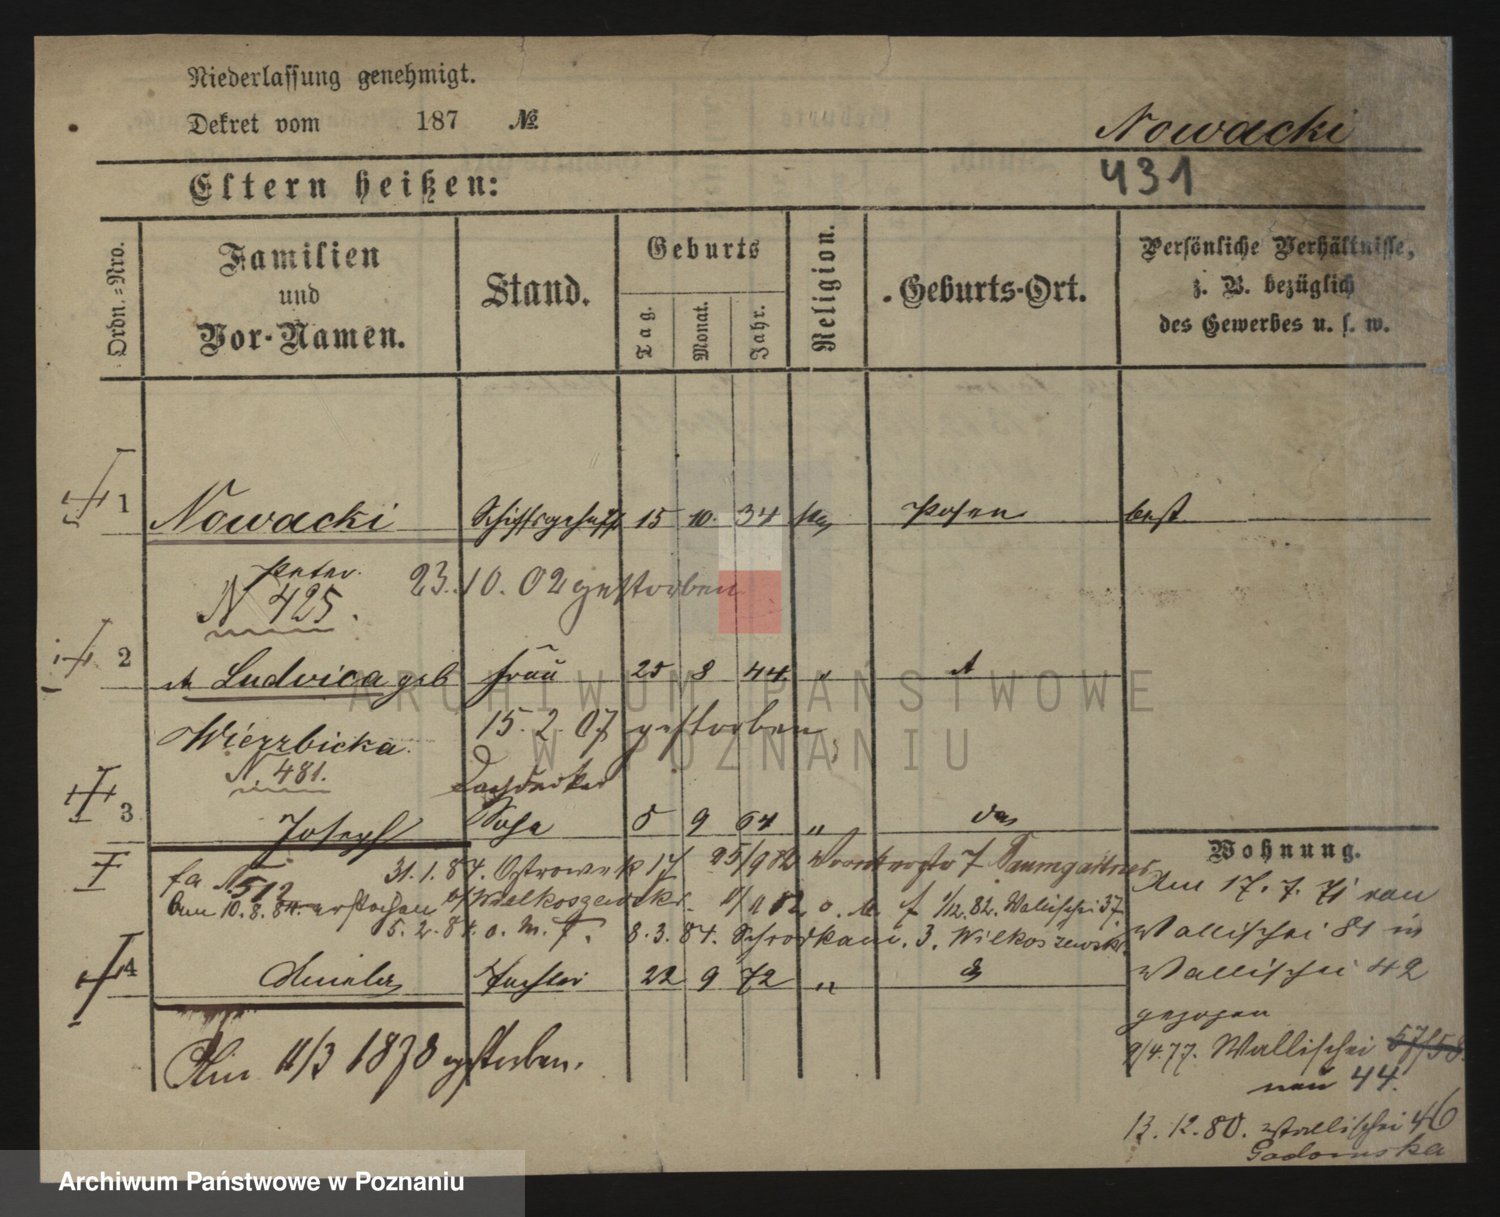 Niederlassung genehmigt.
Dekret vom 187 №
Nowacki
431
Eltern heißen:
Ordn.-Nro.
Familien und Vor-Namen.
Stand.
Geburts
Tag.
Monat.
Jahr.
Religion.
Geburts-Ort.
Persönliche Verhältnisse, z. B. bezüglich des Gewerbes u. s. w.
1 Nowacki 15 10. 34 Posen
Peter.
N 425.
23.10.02 gestorben
2 Ludvica geb Frau 25 8 44 "
Wierzbicka.
15.2.07 gestorben
N. 481.
Dachdecker
3 Joseph Sohn 5 9 64 "
Wohnung.
31.1.84. Ostrowek 17 25/9 82 7
N 512
Am 10.8.84. 1/12.82. Wallischei 37.
5.2.84. o. M. 8.3.84. Schrodkam. 3.
4 Tochter 22 9 72 "
Am 11/3 1878 gestorben.
Am 17. 7. 71 von
Wallischei 81 in
Wallischei 42
gezogen
9/4.77. Wallischei 57/58.
neu 44.
13.12.80. Wallischei 46
Gadomska
ARCHIWUM PAŃSTWOWE
W POZNANIU
Archiwum Państwowe w Poznaniu